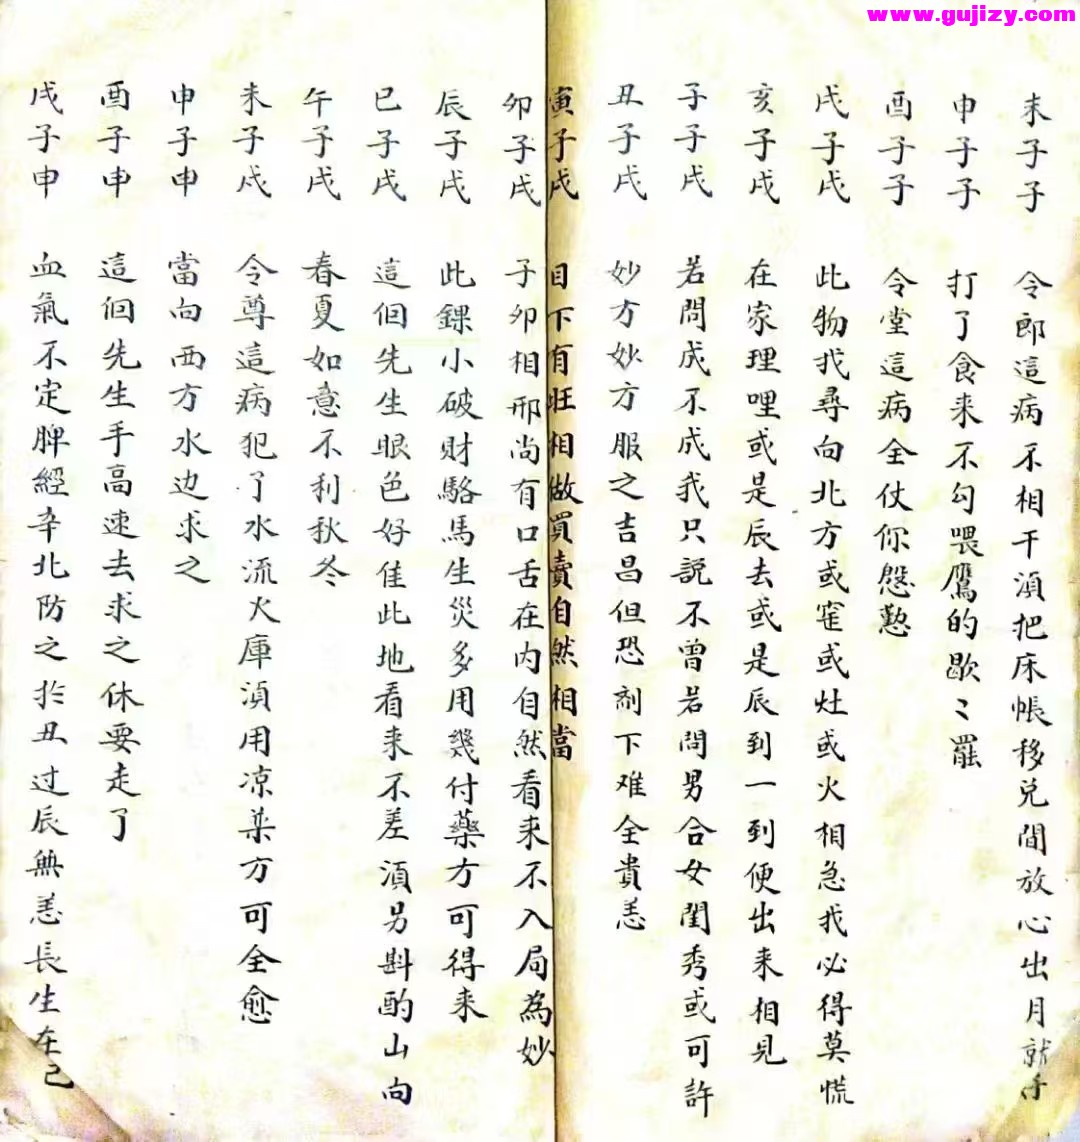 www.gujizy.com
未子子 令郎這病不相干湏把床帳移兑間放心出月就好
申子子 打了食来不勾喂鷹的歇〻罷
酉子子 令堂這病全仗你慇懃
戌子戌 此物我尋向北方或窑或灶或火相急我必得莫慌
亥子戌 在家理哩或是辰去或是辰到一到便出来相見
子子戌 若問成不成我只説不曾若問男合女閨秀或可許
丑子戌 妙方妙方服之吉昌但恐剂下难全貴恙
寅子戌 目下有旺相做買賣自然相當
卯子戌 子卯相邢尚有口舌在内自然看来不入局為妙
辰子戌 此錁小破財駱馬生災多用幾付藥方可得来
巳子戌 這個先生眼色好佳此地看来不差湏另斟酌山向
午子戌 春夏如意不利秋冬
未子戌 令尊這病犯了水流火庫湏用凉藥方可全愈
申子申 當向西方水边求之
酉子申 這個先生手高速去求之休要走了
戌子申 血氣不定脾經辛北防之於丑过辰無恙長生在己